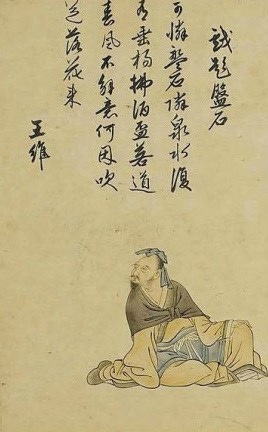 戲題盤石
可憐盤石隣泉水復
有垂楊拂酒盃若道
春風不解意何因吹
送落花来
王維